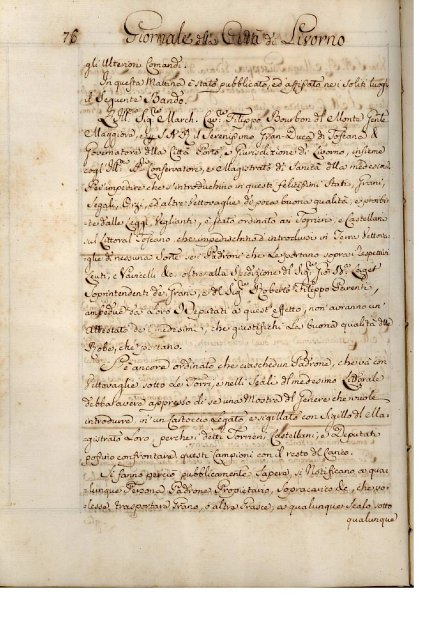 76 Giornale della Città di Livorno
gli Ulteriori Comandi.
In questa Mattina è Stato pubblicato, ed affissato nei Soliti luoghi
il Seguente Bando.
Filippo Bourbon del Monte
Maggiore, Serenissimo Gran-Duca di Toscana &
Governatore della Città Porto, e Giurisdizione di Livorno, insieme
cogl' Conservatori, e Magistrato di Sanità della medesima
Per impedire che s'introduchino in questi felicissimi Stati, Grani,
Segale, Orzi, ed altre Vettovaglie di poca buona qualità, e proibite
dalle Leggi Veglianti, è stato ordinato ai Torrieri, e Castellani
sul Littoral Toscano, che d'introdursi in Terra
di nessuna Sorte se i Padroni che le portano sopra
Leuti, e Navicelli che oltre alla Spedizione del Sig.re
Soprintendenti de Grani, e del Sig.re Roberto Filippo Parenti,
ambedue da Loro Deputati a quest' effetto, non avranno un'
Attestato de medesimi, che giustifichi La buona qualità delle
Robe, che portano.
Si è ancora ordinato che ciaschedun Padrone, che và con
Vettovaglie sotto le Torri, e nelli Scali del medesimo Littorale
debba avere appresso di se una Mostra del Genere che vuole
introdurre, in un Cartoccio Legato, e sigillato con Sigillo del Magistrato
Loro, perche i detti Torrieri, Castellani, e Deputati
possino confrontare questi Campioni con il resto del Carico.
Si fanno perciò pubblicamente Sapere, e si Notificano a qualunque
Persona, Padrone, Proprietario, Sopracarico &c., che volesse
trasportare Grano, o altre Grasce, a qualunque Scalo, sotto
qualunque